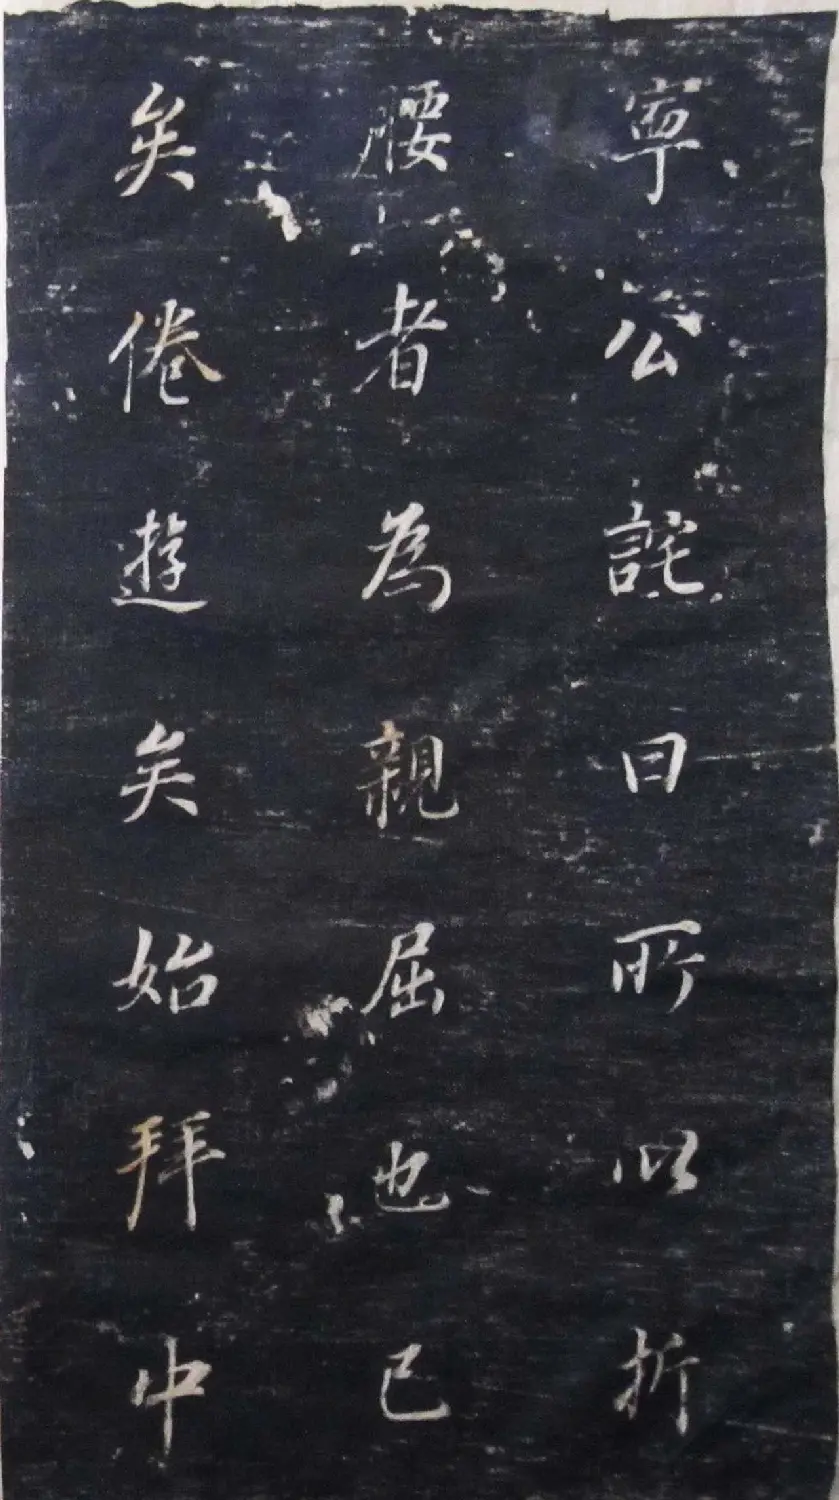 寧公詫曰所以折
腰者為親屈也已
矣倦遊矣始拜中